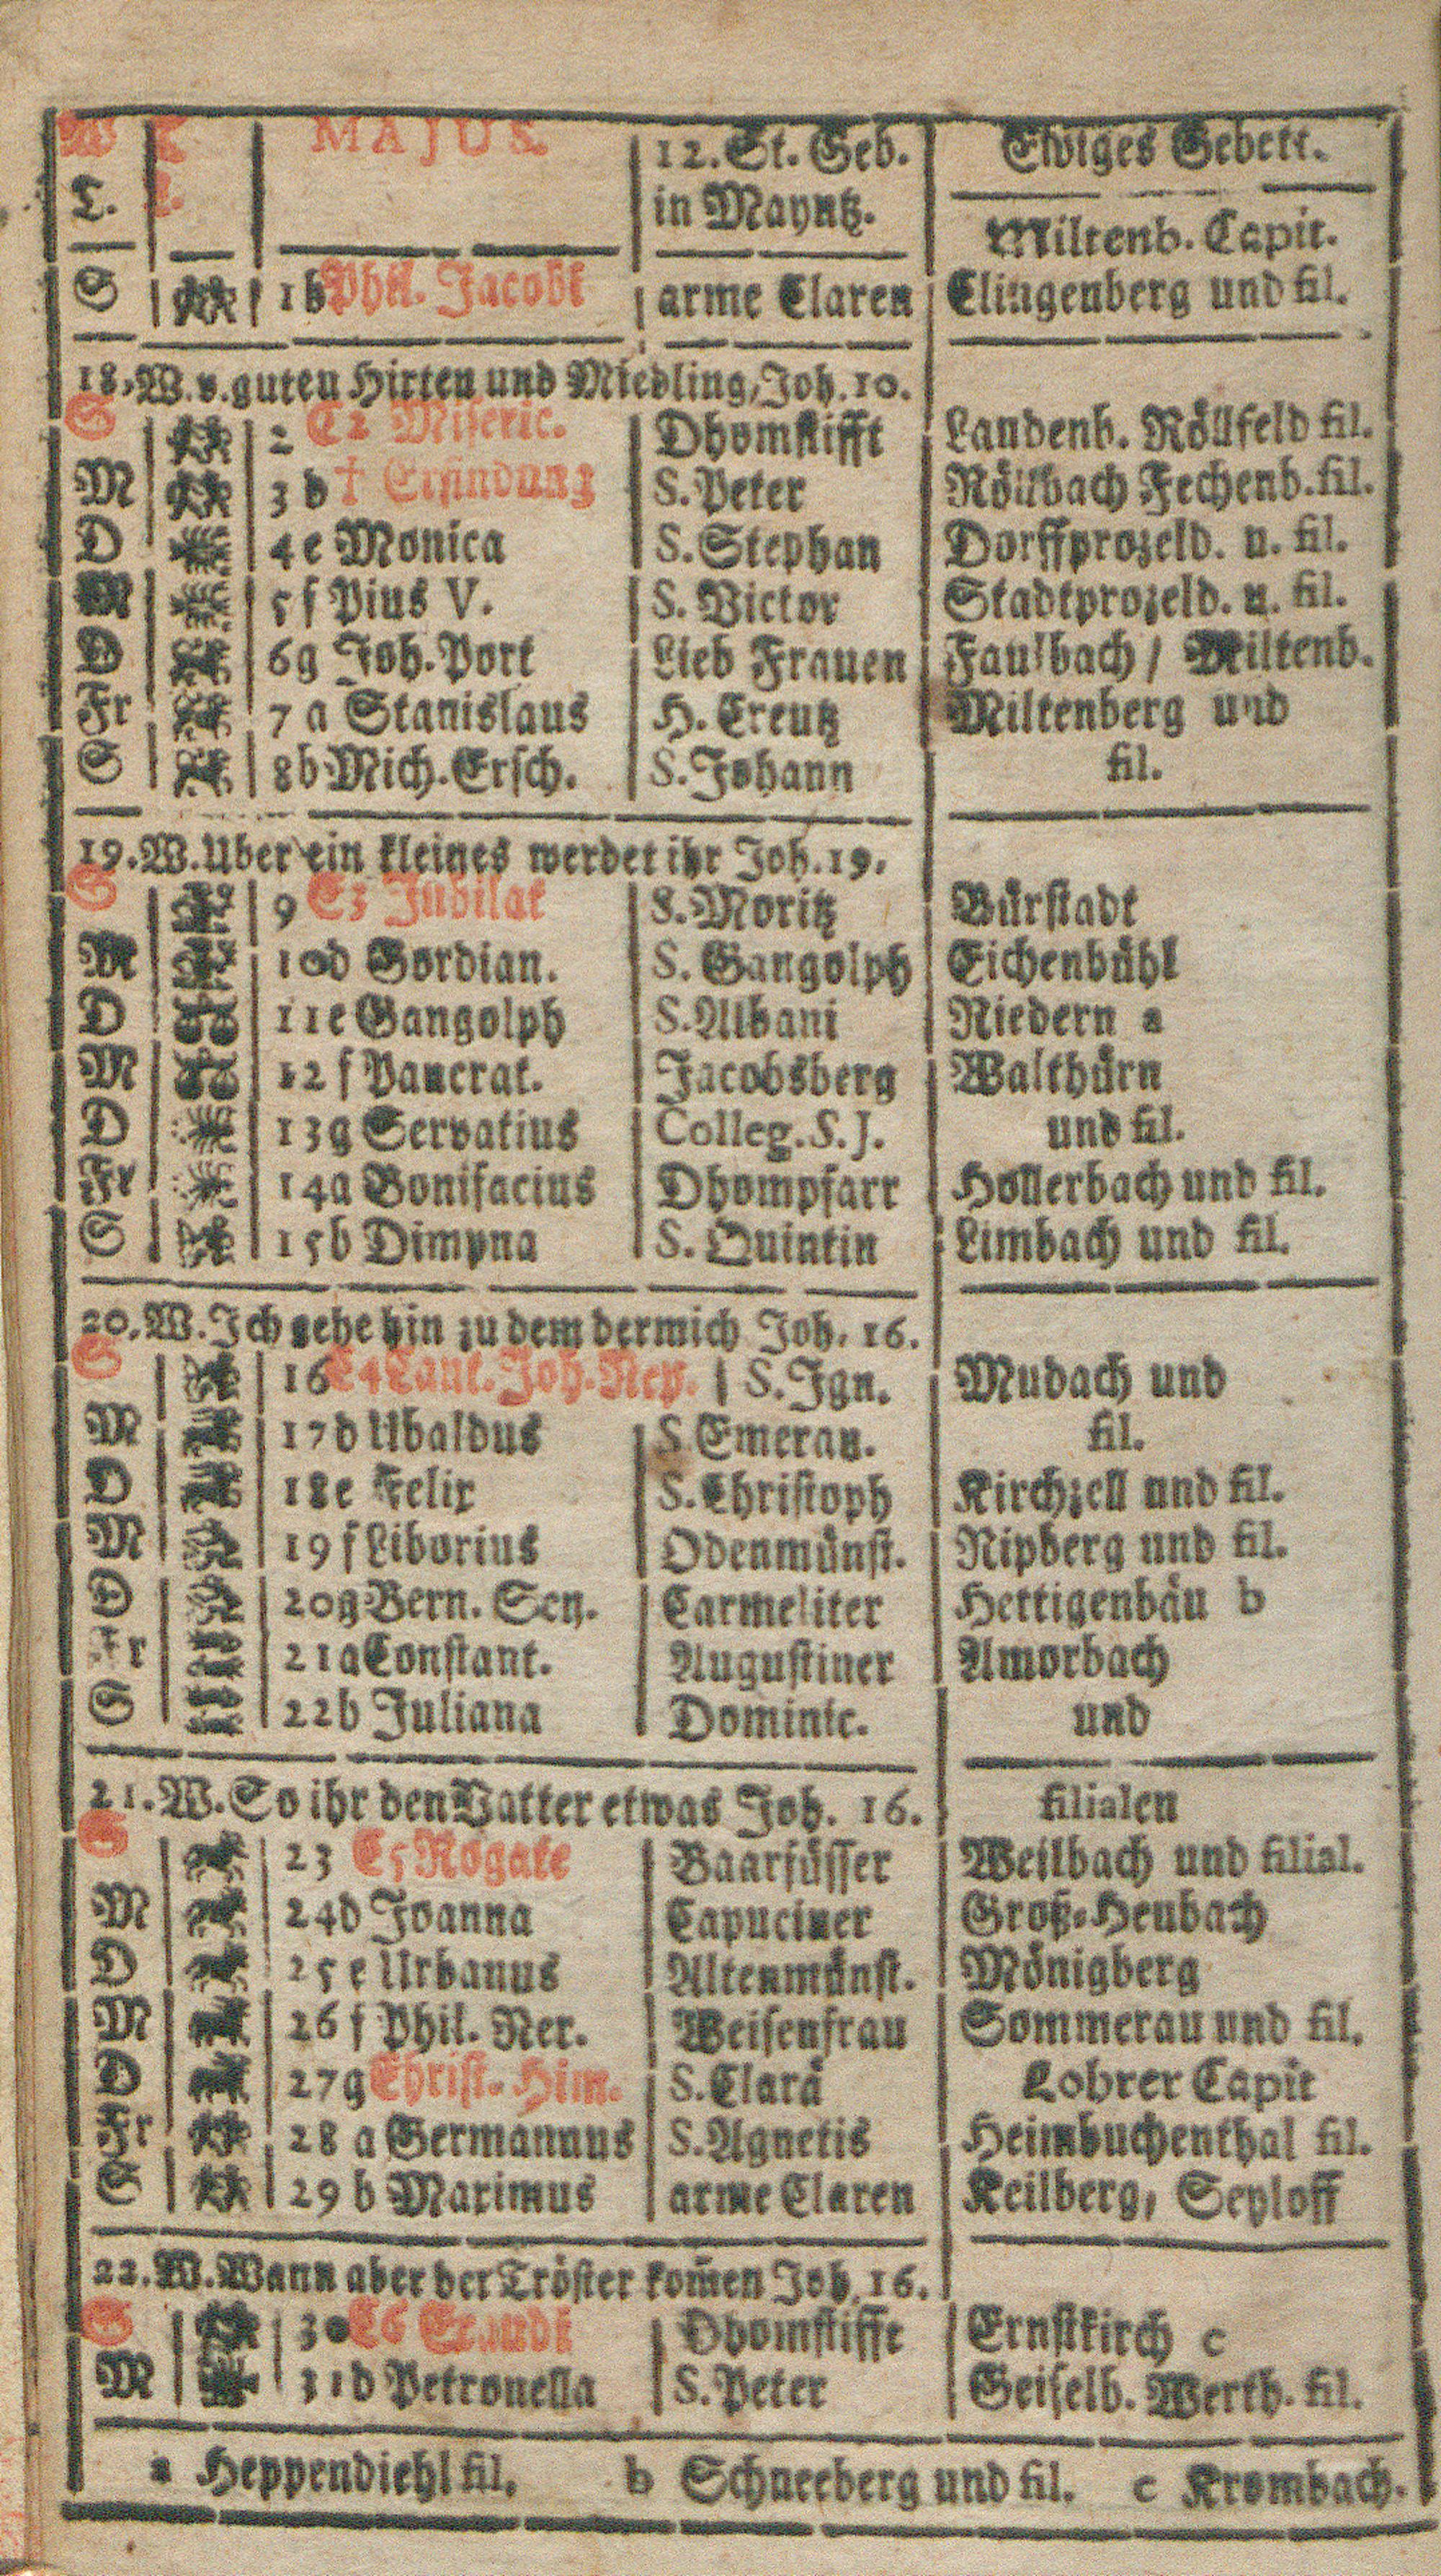 W K MAJUS. 12. St. Geb. Ewiges Gebett.
T. L. in Mayntz. Miltenb. Capit.
S 1 b Phil. Jacobi arme Claren Clingenberg und fil.
18. W. v. guten Hirten und Miedling, Joh. 10.
S 2 C2 Miseric. Dhomstifft Laudenb. Röllfeld fil.
M 3 d † Erfindung S. Peter Röllbach Fechenb. fil.
D 4 e Monica S. Stephan Dorffprozeld. u. fil.
M 5 f Pius V. S. Victor Stadtprozeld. u. fil.
D 6 g Joh. Port Lieb Frauen Faulbach / Miltenb.
Fr 7 a Stanislaus H. Creutz Miltenberg und
S 8 b Mich. Ersch. S. Johann fil.
19. W. Uber ein kleines werdet ihr Joh. 19.
S 9 C3 Jubilat S. Moritz Bürstadt
M 10 d Gordian. S. Gangolph Eichenbühl
D 11 e Gangolph S. Albani Riedern a
M 12 f Pancrat. Jacobsberg Walthürn
D 13 g Servatius Colleg. S. J. und fil.
Fr 14 a Bonifacius Dhompfarr Hollerbach und fil.
S 15 b Dimpna S. Quintin Limbach und fil.
20. W. Ich gehe hin zu dem der mich Joh. 16.
S 16 C4 Cant. Joh. Nep. S. Ign. Mudach und
M 17 d Ubaldus S Emeran. fil.
D 18 e Felix S. Christoph Kirchzell und fil.
M 19 f Liborius Odenmünst. Ripberg und fil.
D 20 g Bern. Sen. Carmeliter Hettigenbäu b
Fr 21 a Constant. Augustiner Amorbach
S 22 b Juliana Dominic. und
21. W. So ihr den Vatter etwas Joh. 16. filialen
S 23 C5 Rogate Baarfüsser Weilbach und filial.
M 24 d Joanna Capuciner Groß-Heubach
D 25 e Urbanus Altenmünst. Mönigberg
M 26 f Phil. Ner. Weisenfrau Sommerau und fil.
D 27 g Christ. Him. S. Clara Lohrer Capit
Fr 28 a Germannus S. Agnetis Heimbuchenthal fil.
S 29 b Maximus arme Claren Keilberg, Seyloff
22. W. Wann aber der Tröster kom̃en Joh. 16.
S 30 C6 Exaudi Dhomstifft Ernstkirch c
M 31 d Petronella S. Peter Geiselb. Werth. fil.
a Heppendiehl fil. b Schneeberg und fil. c Krombach.